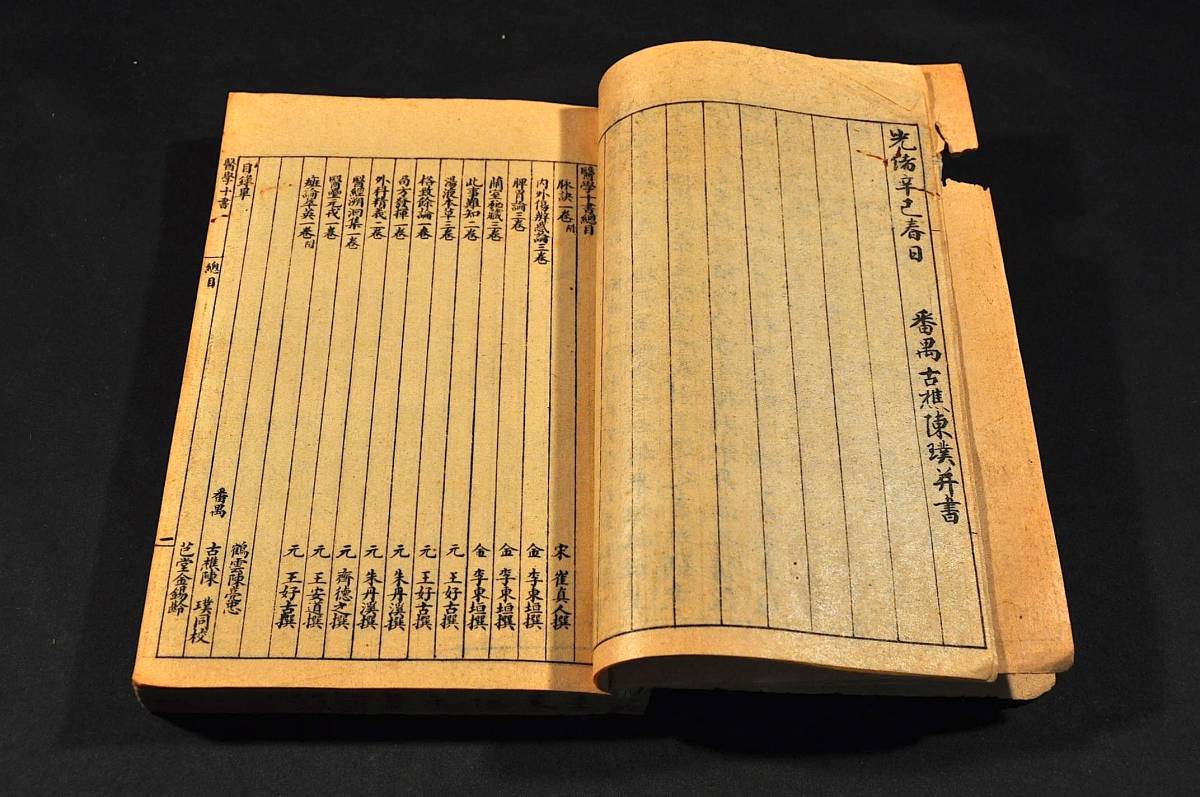 光緒辛巳春日 番禺古樵陳璞并書
醫學十書總目
脉訣一卷附 宋 崔真人撰
內外傷辨惑論三卷 金 李東垣撰
脾胃論三卷 金 李東垣撰
蘭室秘藏三卷 金 李東垣撰
此事難知二卷 元 王好古撰
湯液本草三卷 元 王好古撰
格致餘論一卷 元 朱丹溪撰
局方發揮一卷 元 朱丹溪撰
外科精義二卷 元 齊德之撰
醫經溯洄集一卷 元 王安道撰
醫壘元戎一卷 元 王好古撰
癍論萃英一卷附
目録畢 鶴雲陳亮
番禺 古樵陳 璞同校
芑堂金錫齡
醫學十書 總目 一